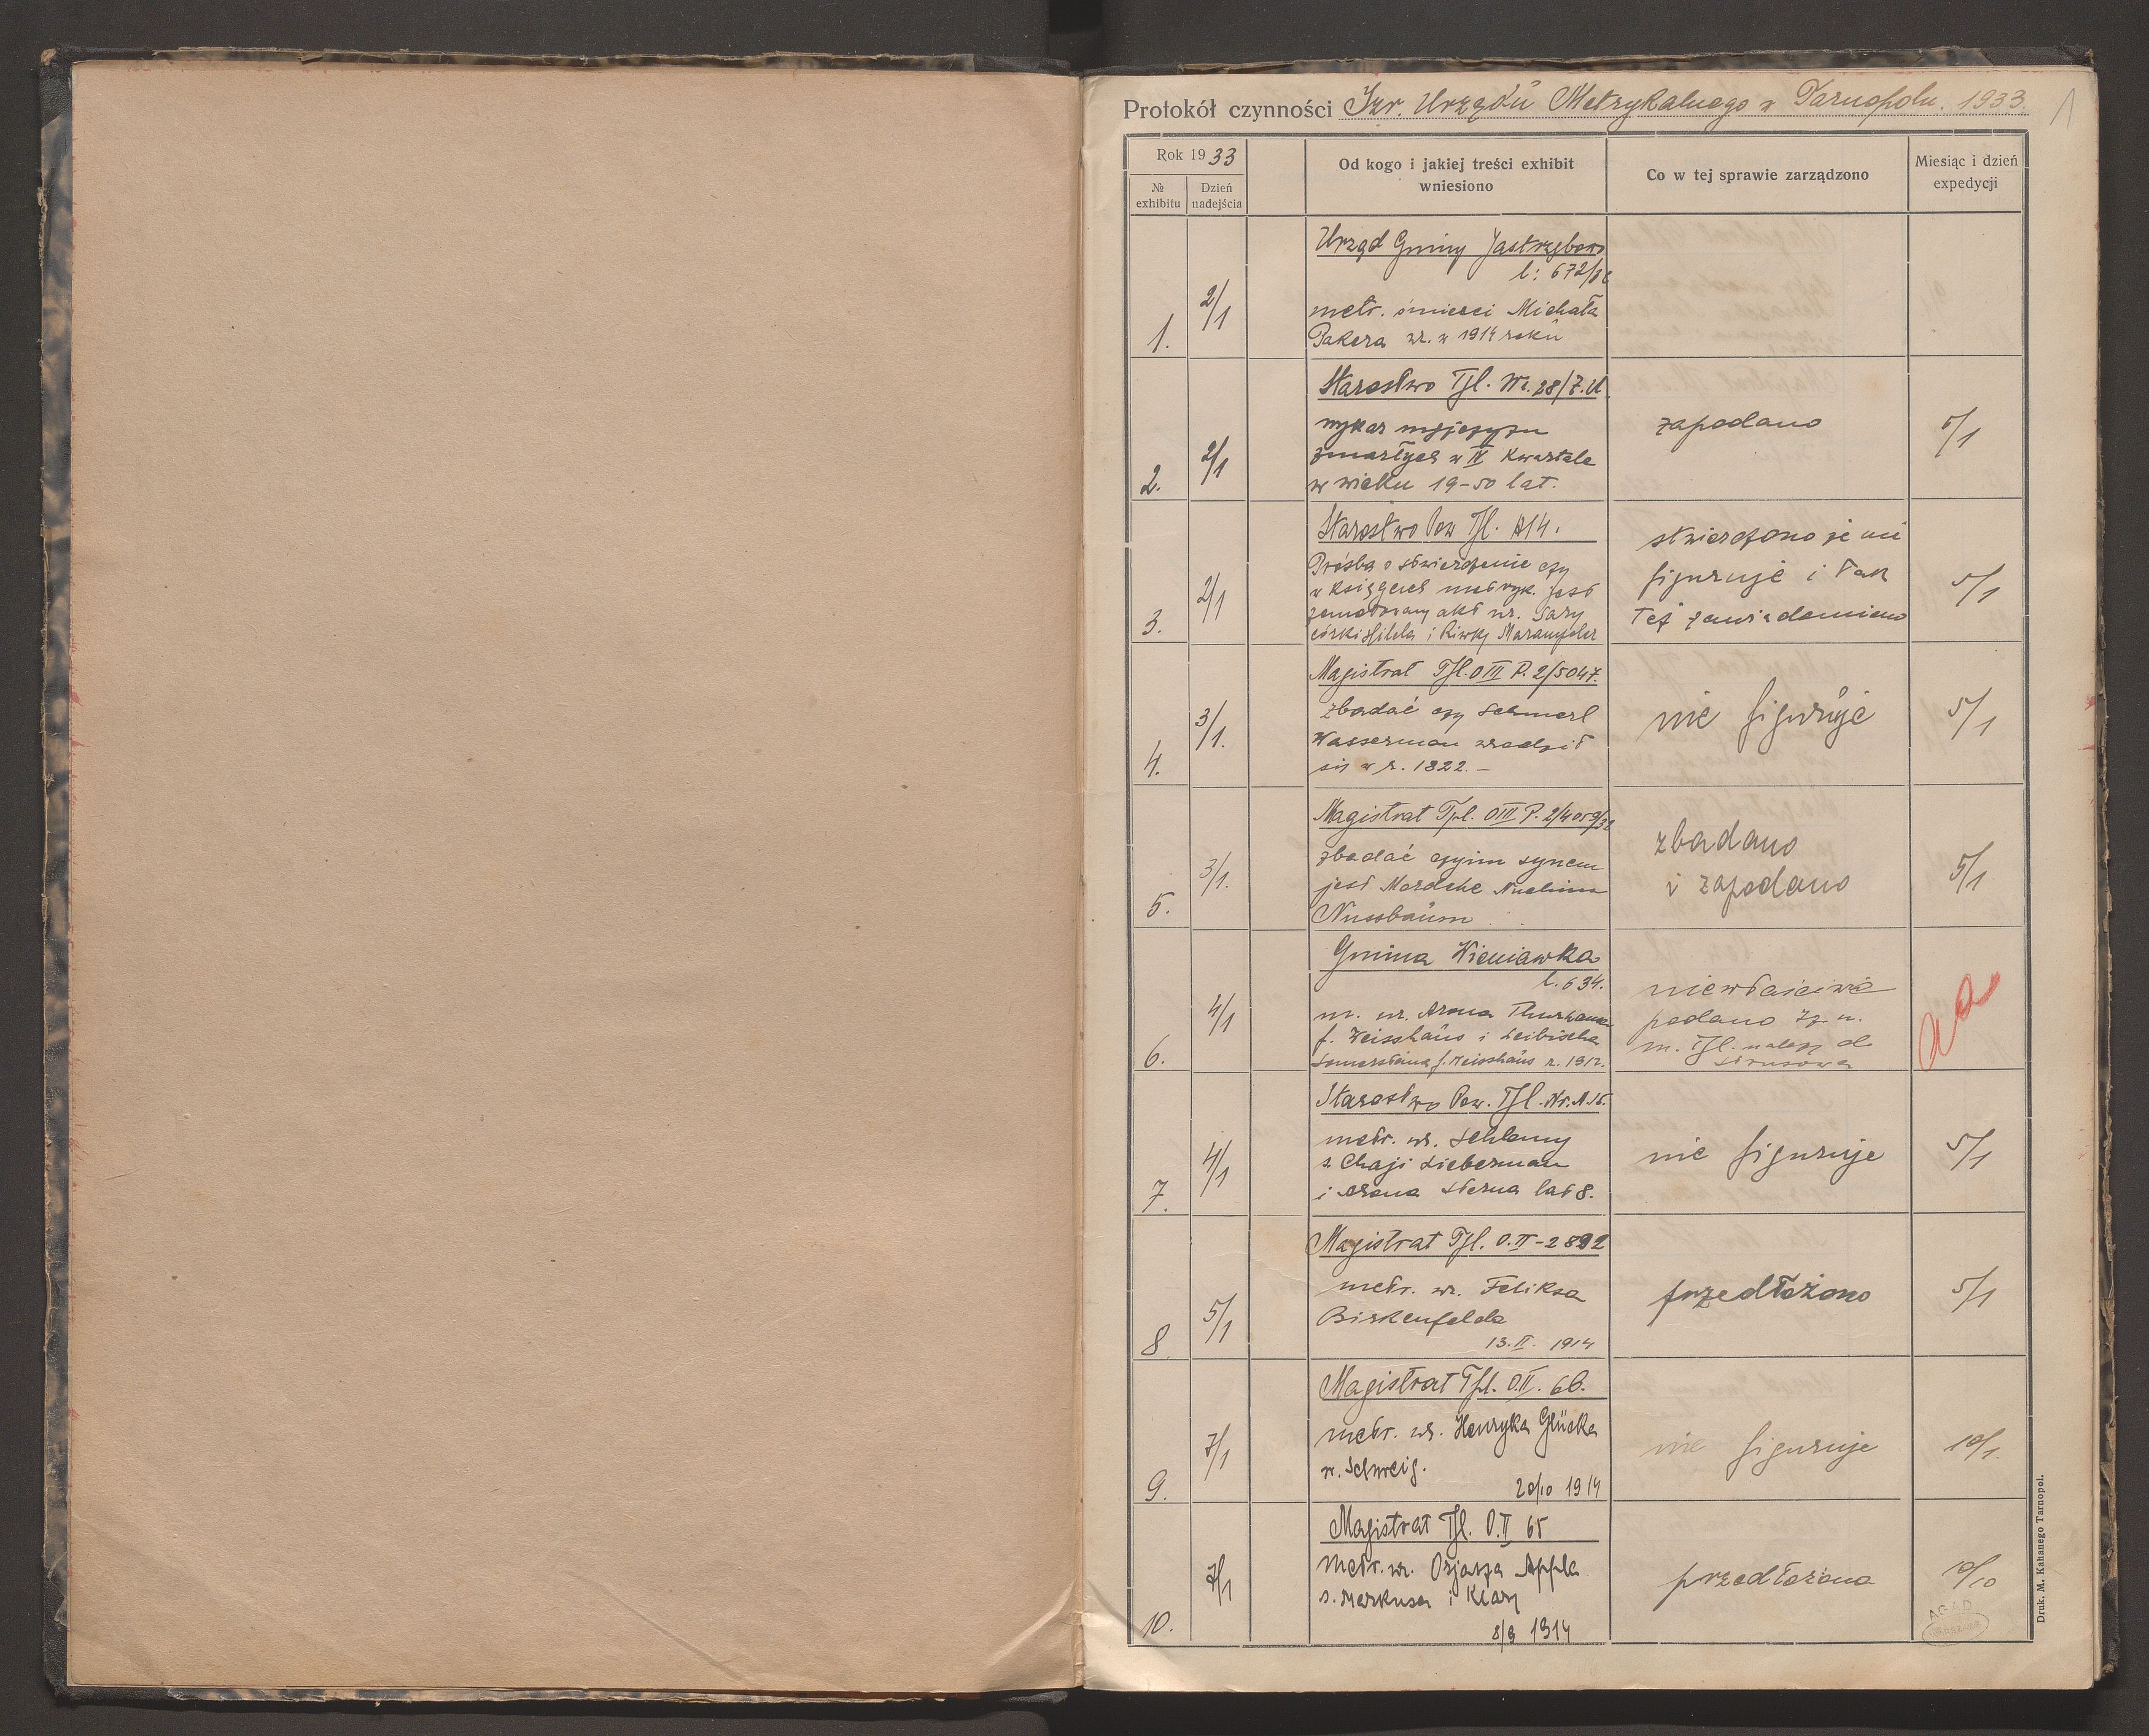 Protokół czynności Izr. Urzędu Metrykalnego w Tarnopolu. 1933.
1
Rok 1933
№ exhibitu
Dzień nadejścia
Od kogo i jakiej treści exhibit wniesiono
Co w tej sprawie zarządzono
Miesiąc i dzień expedycji
1.
2/1
Urząd Gminy
l: 672/
metr. śmierci Michała
Pakera ur. w 1914 roku
2.
2/1
Starostwo Tpl. Nr. 28/
zmarłych w IV kwartale
w wieku 19-50 lat.
zapodano
5/1
3.
2/1
Starostwo Pow Tpl.
Prośba o stwierdzenie czy
w księgach metryk. jest
zanotowany akt ur. Sary
córki Hilela i Riwky
stwierdzono że nie
figuruje i tak
też zawiadomiono
5/1
4.
3/1.
Magistrat Tpl. OIII P. 2/5047.
zbadać czy Schmerl
Wasserman urodził
się w r. 1822. –
nie figuruje
5/1
5.
3/1.
Magistrat Tpl. OIII P. 2/4059/32
zbadać czyim synem
jest Mordche Nuchim
Nussbaum
zbadano
i zapodano
5/1
6.
4/1
Gmina Wieniawka
l. 634.
m. ur. Arona
f. Weisshaus i Leibischa
f. Weisshaus r. 1912.
niewłaściwie
podano
m. Tpl. należy do
Strusowa
aa
7.
4/1
Starostwo Pow. Tpl. Nr.
metr. ur. Schlomy
s. Chaji Lieberman
i Arona Sterna lat 8.
nie figuruje
5/1
8
5/1
Magistrat Tpl. O.II – 2892
metr. ur. Feliksa
Birkenfelda
13.II. 1914
przedłożono
5/1
9.
7/1
Magistrat Tpl. O.II. 66.
metr. ur. Henryka Glücka
20/10 1914
nie figuruje
10/1.
10.
7/1
Magistrat Tpl. O.II 65
metr. ur. Ozjasza Appla
s. Markusa i Klary
8/9 1914
przedłożono
10/10
AGAD
WARSZAWA
Druk. M. Kahanego Tarnopol.